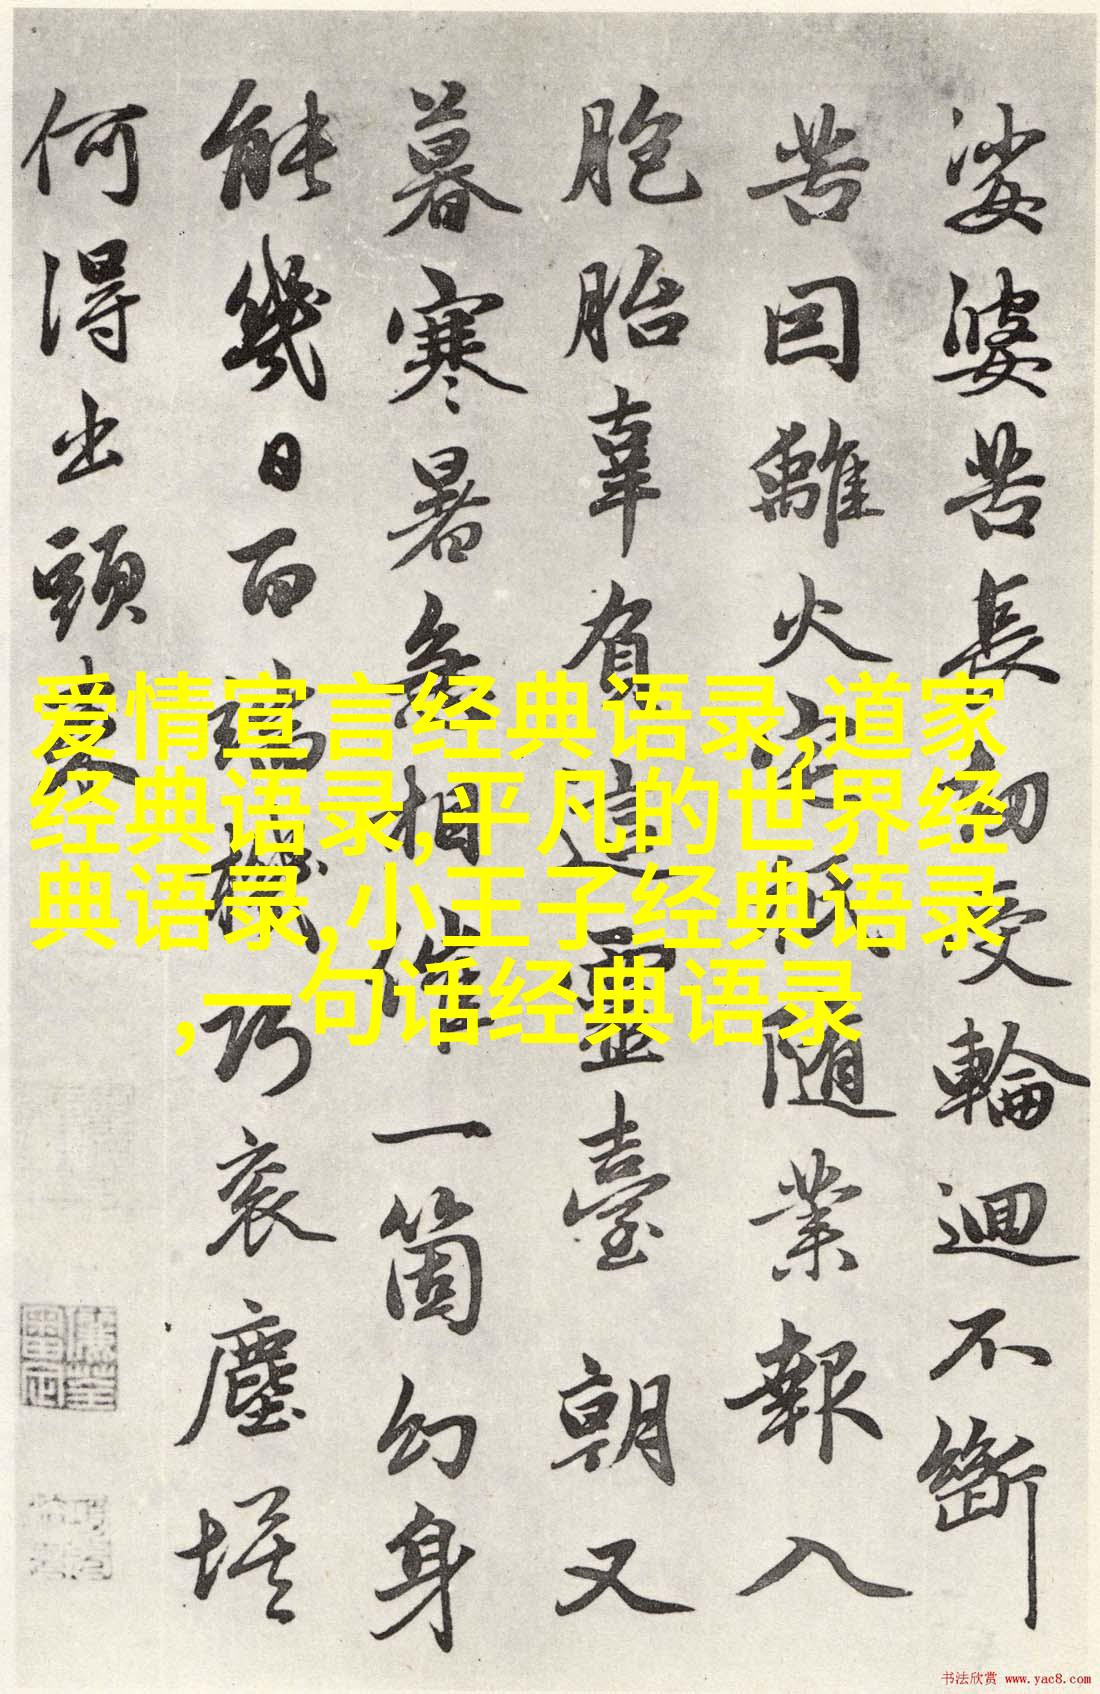 娑婆苦長劫受輪迴不斷
苦囙離火宅秪隨業報入
胞胎辜負這靈臺朝又
暮寒暑急相催一箇幻身
能幾日百端機巧衮塵埃
何得出頭來
爱情宣言经典语录,道家
经典语录,平凡的世界经
典语录,小王子经典语录
,一句话经典语录
书法欣赏 www.yac8.com